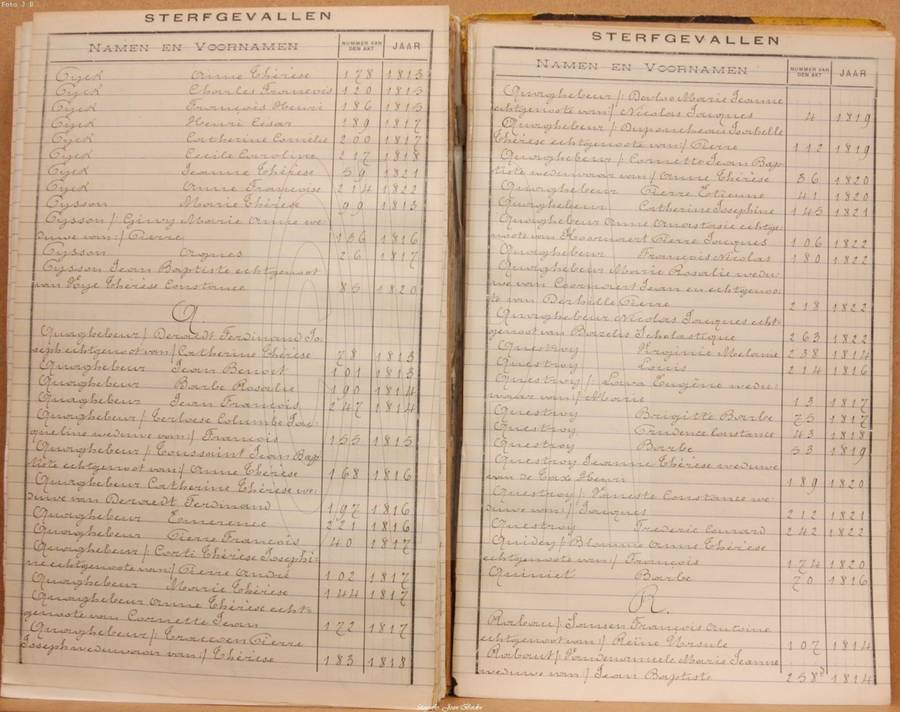 Foto J B
STERFGEVALLEN
NAMEN EN VOORNAMEN NUMMER VAN DEN AKT JAAR
Cyck Anne Thérèse 178 1813
Cyck Charles François 120 1815
Cyck François Henri 186 1815
Cyck Henri César 189 1817
Cyck Catherine Cornélie 200 1817
Cyck Cecile Caroline 217 1818
Cyck Jeanne Thérèse 59 1821
Cyck Anne Françoise 214 1822
Cysson Marie Thérèse 99 1813
Cysson / Marie Anne we-
duwe van / Pierre 136 1816
Cysson Agnes 26 1817
Cysson Jean Baptiste echtgenoot
van Huye Thérèse Constance 85 1820
Q
Quaghebeur / Deraedt Ferdinand Jo-
seph echtgenoot van / Catherine Thérèse 78 1813
Quaghebeur Jean Benoit 101 1813
Quaghebeur Barbe Rosalie 190 1814
Quaghebeur Jean François 247 1814
Quaghebeur / Terloese Columbe Jac-
queline weduwe van / François 155 1815
Quaghebeur / Toussaint Jean Bap-
tiste echtgenoot van / Anne Thérèse 168 1816
Quaghebeur Catherine Thérèse we-
duwe van Deraedt Ferdinand 197 1816
Quaghebeur Emerence 221 1816
Quaghebeur Pierre François 40 1817
Quaghebeur / Corti Thérèse Josephi-
ne echtgenoote van / Pierre André 102 1817
Quaghebeur Marie Thérèse 144 1817
Quaghebeur Anne Thérèse echt-
genoote van Cornette Jean 172 1817
Quaghebeur / Pierre
Joseph weduwaar van / Thérèse 183 1818
STERFGEVALLEN
NAMEN EN VOORNAMEN NUMMER VAN DEN AKT JAAR
Quaghebeur / Marie Jeanne
echtgenoote van / Nicolas Jacques 4 1819
Quaghebeur / Duponcheau Isabelle
Thérèse echtgenoote van / Pierre 112 1819
Quaghebeur / Cornette Jean Bap-
tiste weduwaar van / Anne Thérèse 36 1820
Quaghebeur Pierre Etienne 41 1820
Quaghebeur Catherine Josephine 145 1821
Quaghebeur Anne Anastasie echtge-
noote van Pierre Jacques 106 1822
Quaghebeur François Nicolas 180 1822
Quaghebeur Marie Rosalie wedu-
we van Coornaert Jean en echtgenoo-
te van Derhelle Pierre 218 1822
Quaghebeur Nicolas Jacques echt-
genoot van Bazelis Scholastique 263 1822
Questroy Virginie Melanie 238 1814
Questroy Louis 214 1816
Questroy / Lava Eugène wedu-
waar van / Marie 13 1817
Questroy Brigitte Barbe 75 1817
Questroy Prudence Constance 43 1818
Questroy Barbe 53 1819
Questroy Jeanne Thérèse weduwe
van de Taxe Henri 189 1820
Questroy / Vaneste Constance we-
duwe van / Jacques 212 1821
Questroy Frederic Conrard 242 1822
Quidey / Blomme Anne Thérèse
echtgenoote van / François 174 1820
Quiniet Barbe 70 1816
R.
Rabau / Jansen François Antoine
echtgenoot van / Reine Ursule 107 1814
Rabaut / Vandenameele Marie Jeanne
weduwe van / Jean Baptiste 258 1814